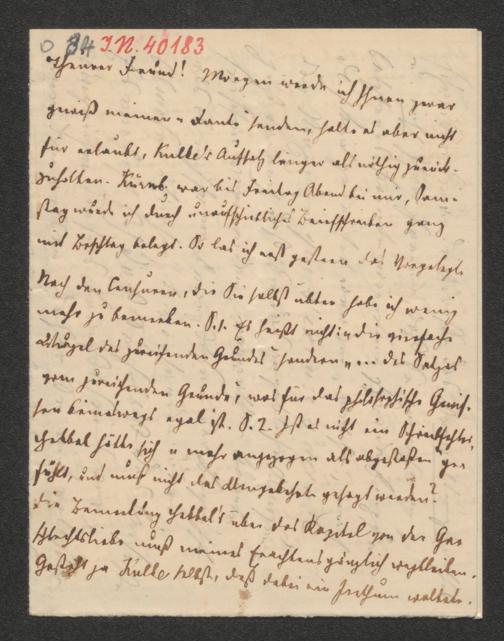 O 34 I.N. 40183
Theurer Freund! Morgen werde ich Ihnen zwar
gewiß meinen "Dante" senden, halte es aber nicht
für erlaubt, Kulke's Aufsatz länger als nöthig zurück-
zuhalten. war bis Freitag Abend bei mir, Sam-
stag wurde ich durch unaufschiebliches Briefschreiben ganz
mit Beschlag belegt. So las ich erst gestern das Vorgelegte
Nach den Censuren, die Sie selbst übten habe ich wenig
mehr zu bemerken. S. 1. Es heißt nicht: "die vierfache
Wurzel des zureichenden Grundes" sondern "... des Satzes
vom zureichenden Grunde", was für das philosophische Gewis-
sen keineswegs egal ist. S. 2. Ist es nicht ein Schreibfehler,
Hebbel hätte sich "mehr angezogen als abgestoßen" ge-
fühlt, und muß nicht das Umgekehrte gesagt werden?
Die Bemerkung Hebbel's über das Kapitel von der Ges
chlechtsliebe muß meines Erachtens gänzlich wegbleiben.
Gesteht ja Kulke selbst, daß dabei ein Irrthum waltete.